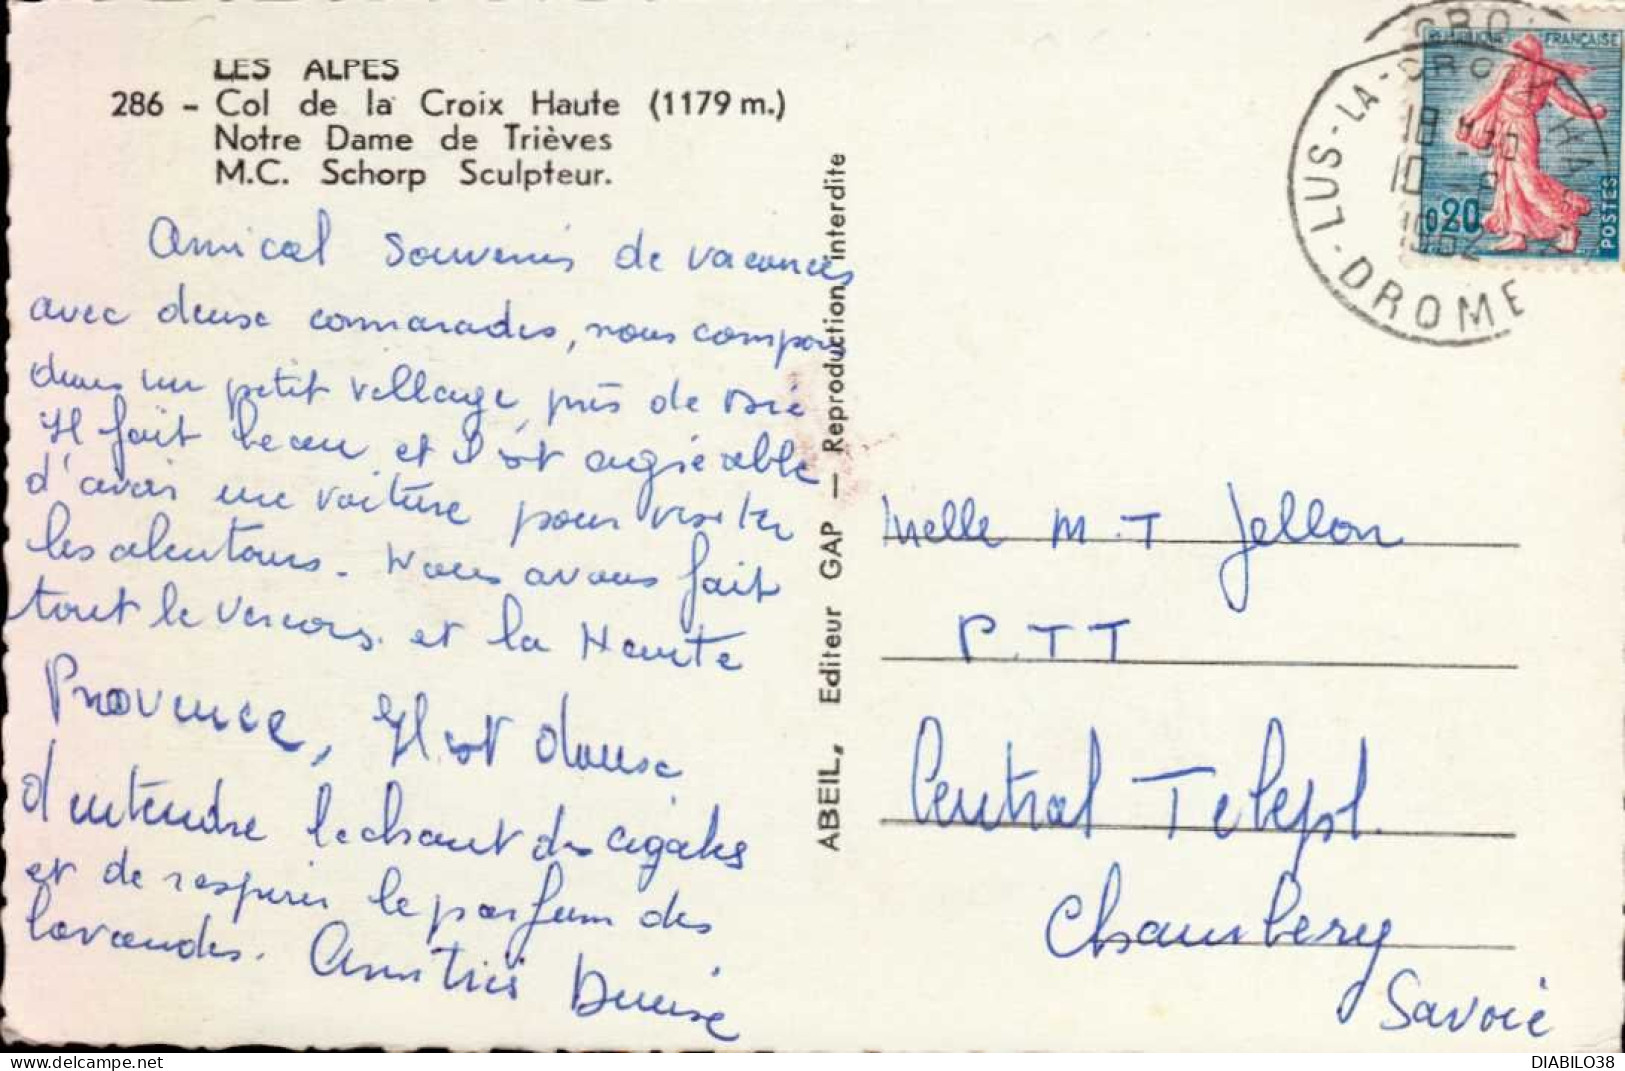 LES ALPES
286 - Col de la Croix Haute (1179 m.)
Notre Dame de Trièves
M.C. Schorp Sculpteur.
Amical souvenir de vacances
avec deux camarades, nous campons
dans un petit village près de Die
Il fait beau et il est agréable
d'avoir une voiture pour visiter
les alentours. Nous avons fait
tout le Vercors et la Haute
Provence, Il est doux
d'entendre le chant des cigales
et de respirer le parfum des
lavandes. Amitiés Denise
ABEIL, Editeur GAP — Reproduction interdite
LUS-LA-CROIX-HAUTE
DROME
18H30
10 -8
1962
REPUBLIQUE FRANÇAISE
0,20
POSTES
Melle M.T Jellon
P.T.T
Central Teleph.
Chambery
Savoie
DIABILO38